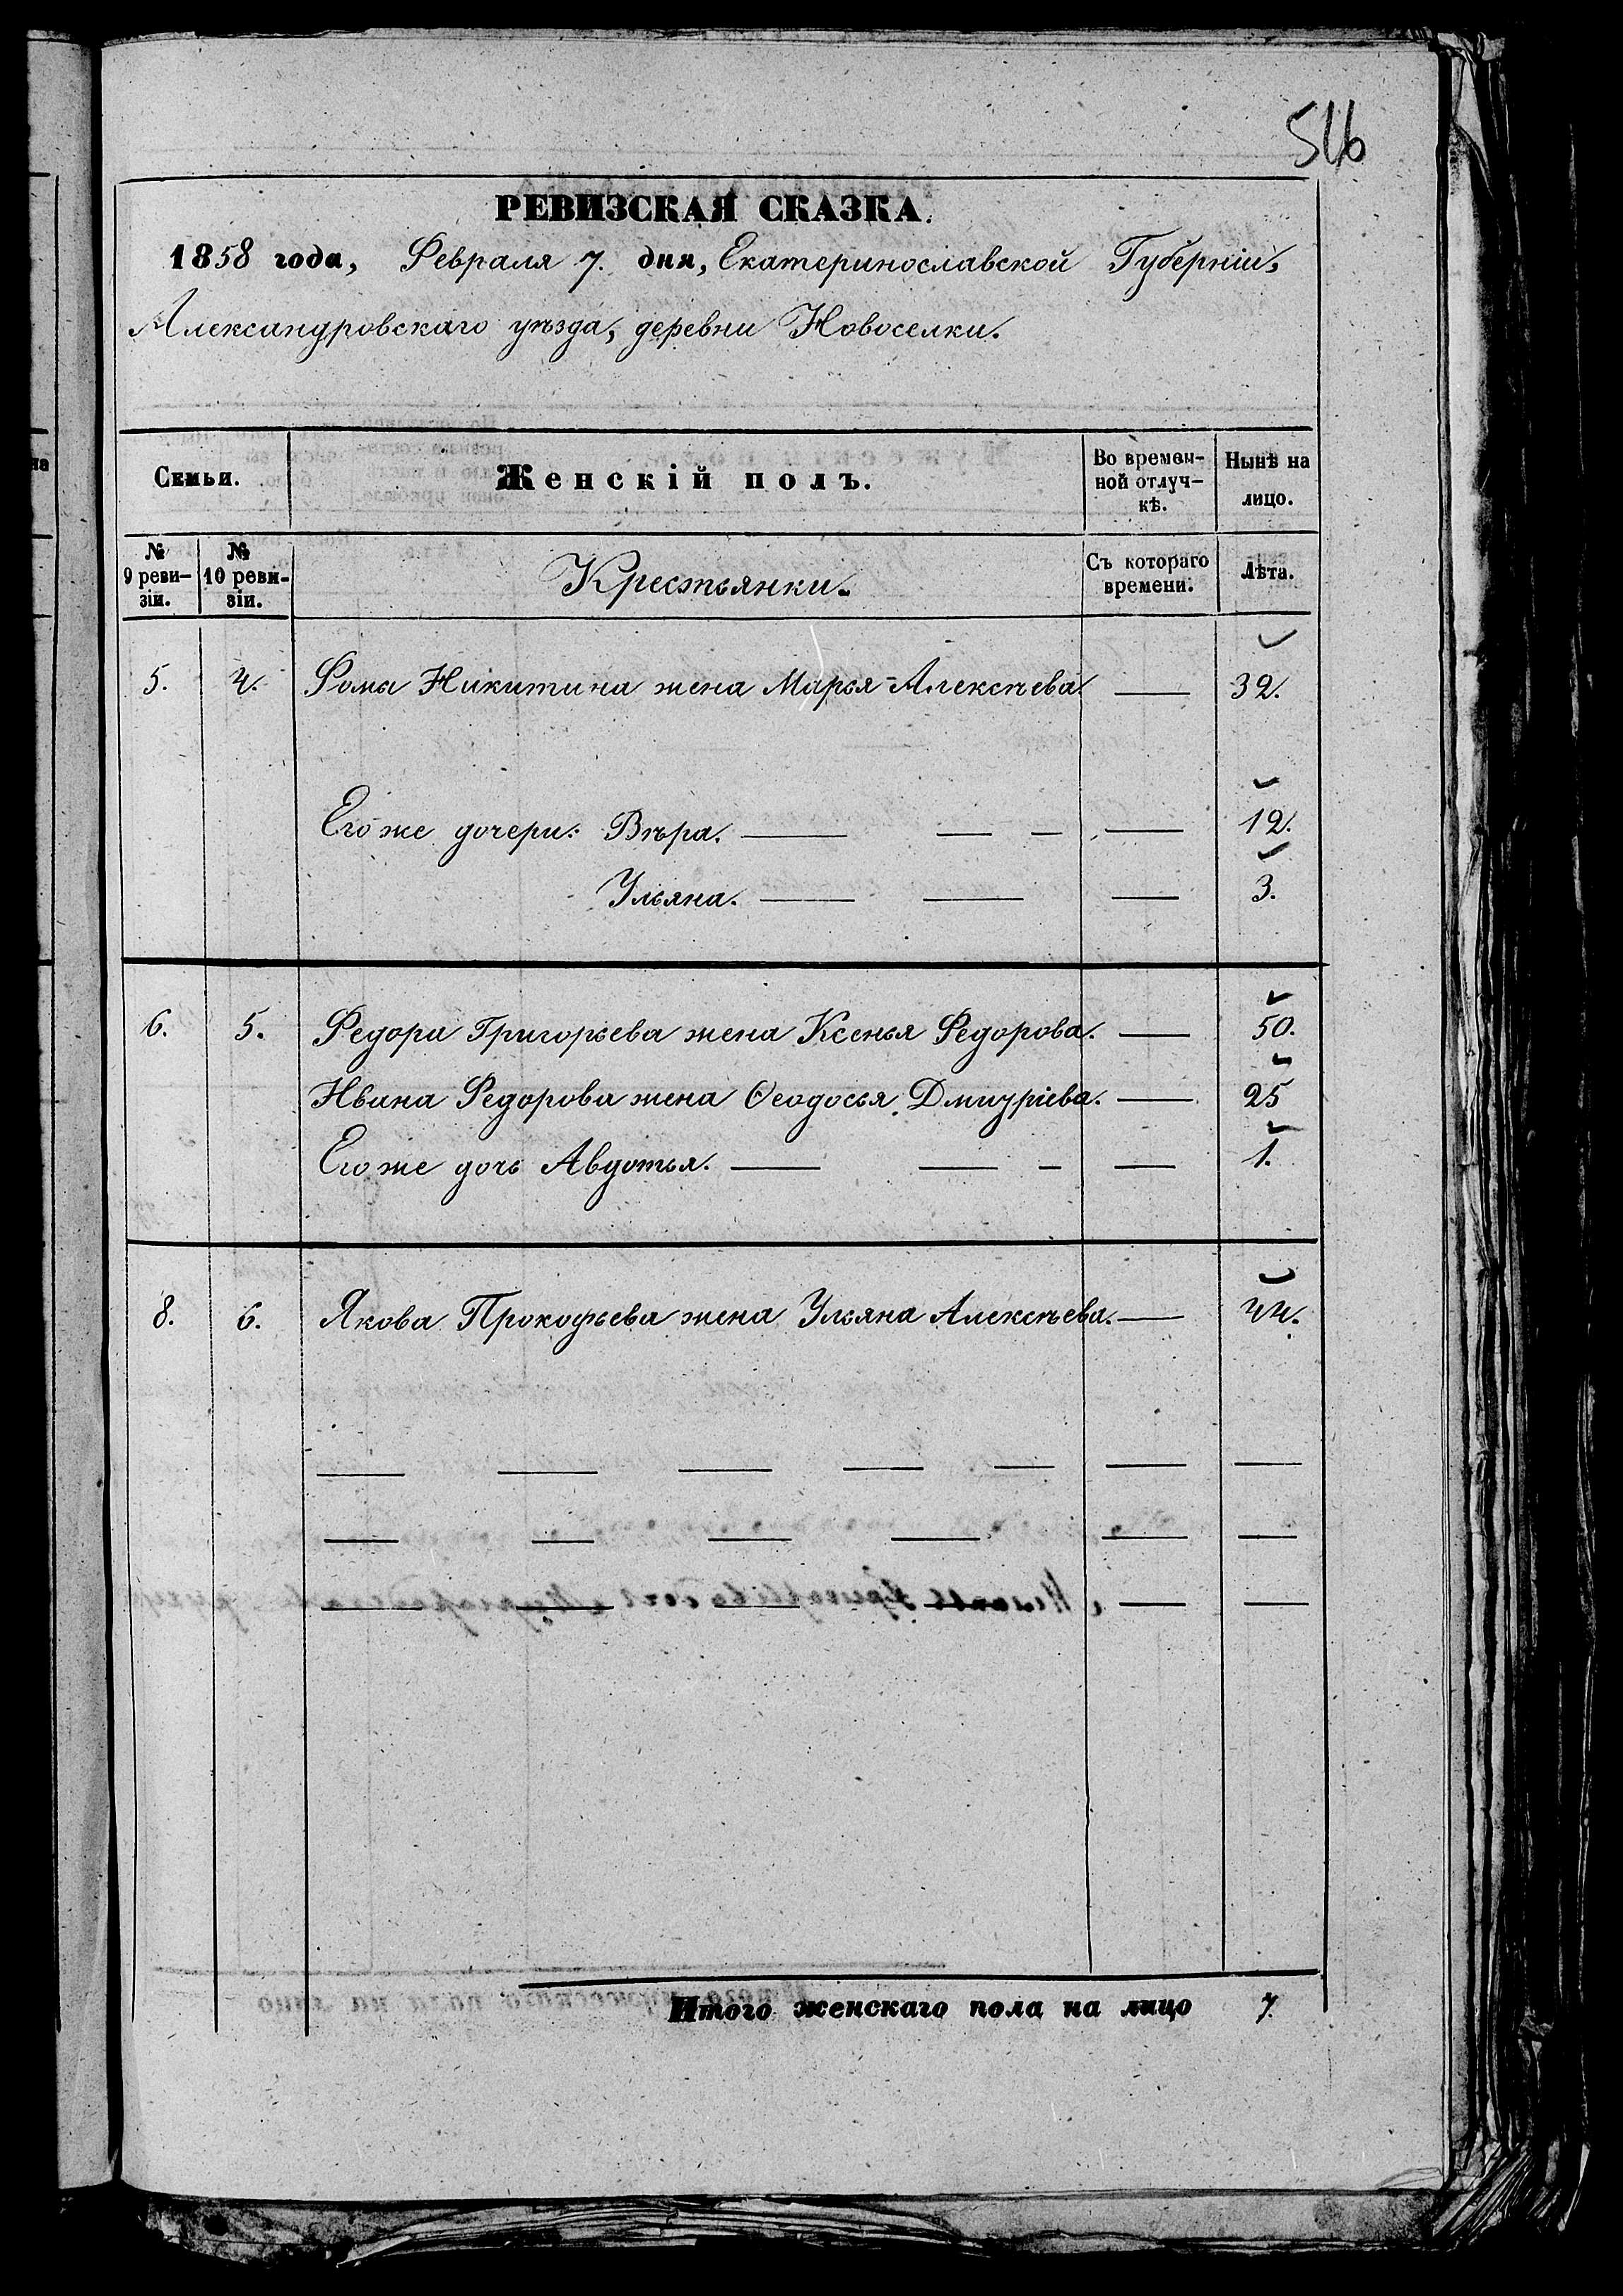 516
РЕВИЗСКАЯ СКАЗКА.
1858 года, Февраля 7. дня, Екатеринославской Губерніи,
Александровскаго уѣзда, деревни Новоселки.
Семьи.
Женскій полъ.
Во времен-
ной отлуч-
кѣ.
Нынѣ на
лицо.
№
9 реви-
зіи.
№
10 реви-
зіи.
Крестьянки.
Съ котораго
времени.
Лѣта.
5. 4. Фомы Никитина жена Марья Алексѣева. — 32.
Его же дочери: Вѣра. — — — — 12.
Ульяна. — — — 3.
6. 5. Федора Григорьева жена Ксенья Федорова. — 50.
Ивана Федорова жена Ѳеодосья Дмитріева. — 25
Его же дочь Авдотья. — — — — 1.
8. 6. Якова Прокофьева жена Ульяна Алексѣева. — 44.
Итого женскаго пола на лицо 7.